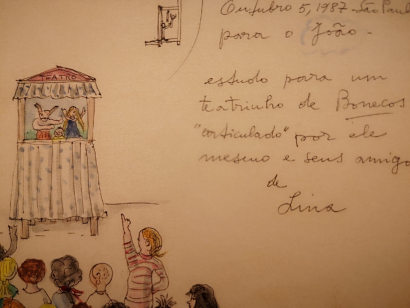 Outubro 5, 1987 - São Paul
para o João -
estudo para um
teatrinho de Bonecos
"articulado" por ele
mesmo e seus amigo
de
Lina
TEATRO